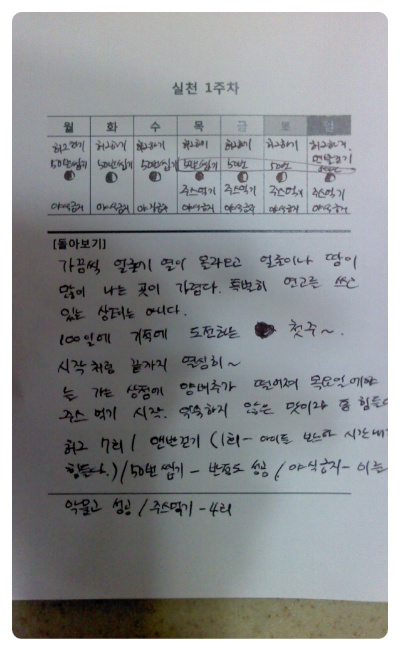 실천 1주차
월 화 수 목 금 토 일
허그하기 허그하기 허그하기 허그하기 허그하기 허그하기 허그하기
맨발걷기
50번씹기 50번씹기 50번씹기 50번씹기 50번 50번
쥬스먹기 쥬스먹기 쥬스먹기 쥬스먹기
야식금지 야식금지 야식금지 야식금지 야식금지 야식금지 야식금지
[돌아보기]
가끔씩 얼굴에 열이 올라오고 얼굴이나 땀이
많이 나는 곳이 가렵다. 특별히 연고를 쓰고
있는 상태는 아니다.
100일에 기적에 도전하는 첫주~.
시작처럼 끝까지 열심히~
는 가는 상점에 양배추가 떨어져 목요일에야
쥬스 먹기 시작. 익숙하지 않은 맛이라 좀 힘들
허그 7회 / 맨발걷기 (1회- 아이들 보느라 시간내기
힘들다.) / 50번 씹기 - 반정도 성공 / 야식금지- 이를
악물고 성공 / 쥬스먹기 - 4회